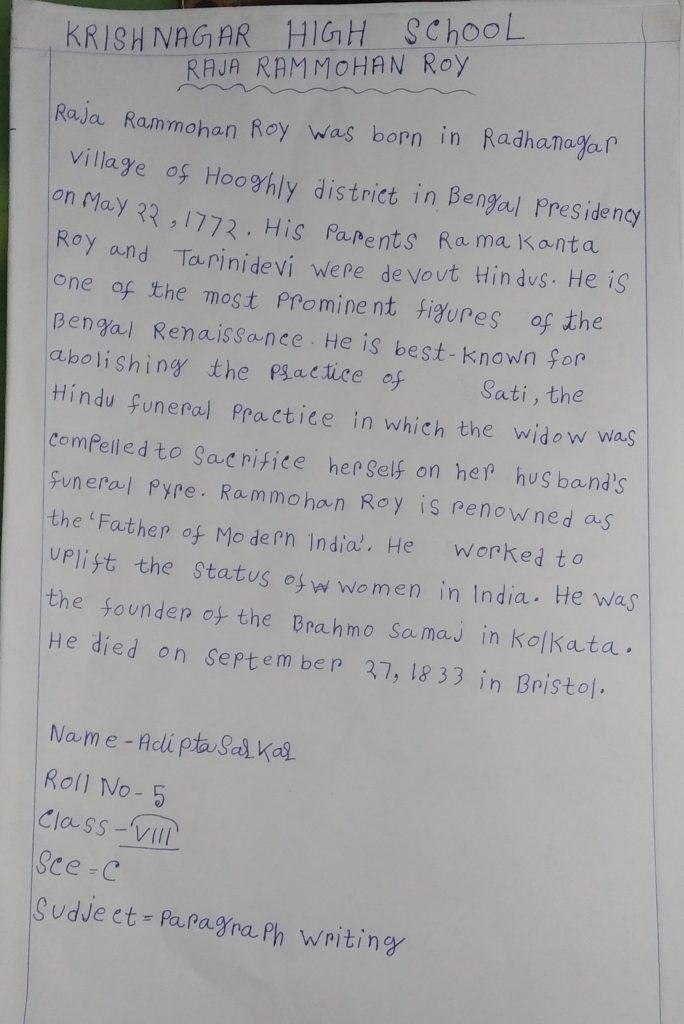 KRISHNAGAR HIGH SCHOOL
RAJA RAMMOHAN ROY
Raja Rammohan Roy was born in Radhanagar
village of Hooghly district in Bengal Presidency
on May 22, 1772. His Parents Ramakanta
Roy and Tarinidevi were devout Hindus. He is
one of the most Prominent figures of the
Bengal Renaissance. He is best-known for
abolishing the practice of Sati, the
Hindu funeral Practice in which the widow was
compelled to Sacrifice herself on her husband's
funeral Pyre. Rammohan Roy is renowned as
the 'Father of Modern India'. He worked to
uplift the Status of women in India. He was
the founder of the Brahmo Samaj in Kolkata.
He died on September 27, 1833 in Bristol.
Name - Adipta Sarkar
Roll No - 5
Class - VIII
Sce = C
Sudject = Paragraph writing